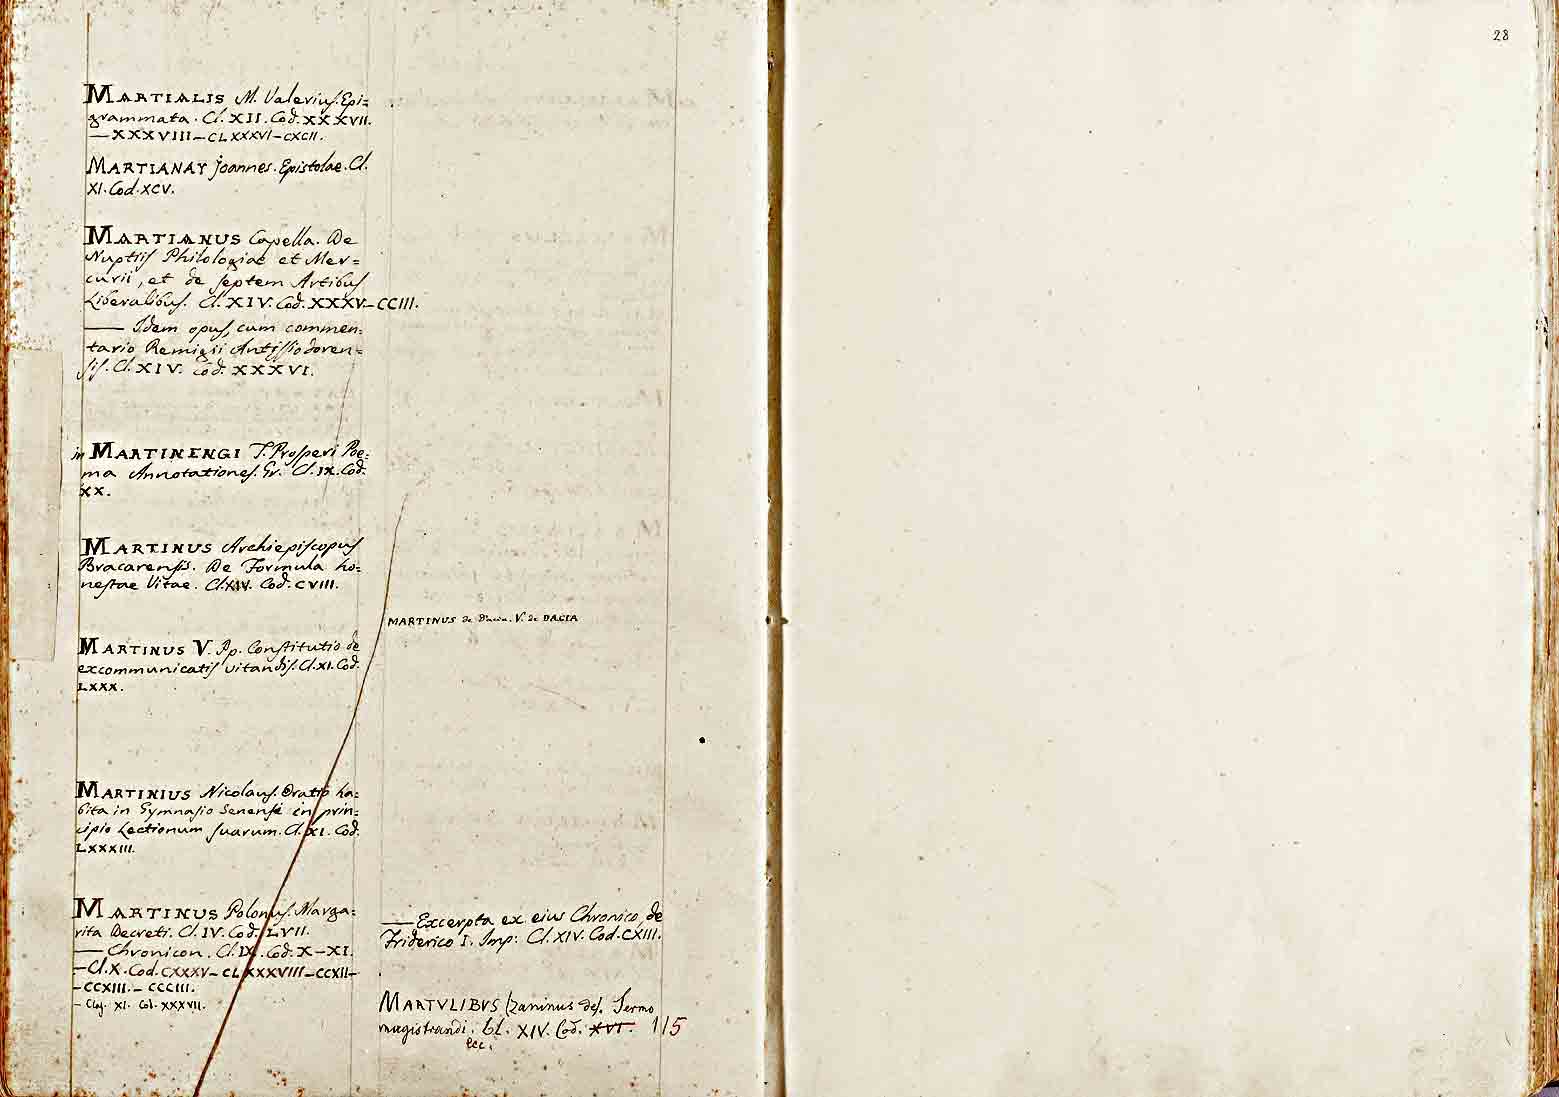 28
MARTIALIS M. Valerius. Epi=
grammata. Cl. XII. Cod. XXXVII.
— XXXVIII — CLXXXVI — CXCII.
MARTIANAY Joannes. Epistolae. Cl.
XI. Cod. XCV.
MARTIANUS Capella. De
Nuptiis Philologiae et Mer=
curii, et de septem Artibus
Liberalibus. Cl. XIV. Cod. XXXV — CCIII.
— Idem opus, cum commen=
tario Remigii Antissiodoren=
sis. Cl. XIV. Cod. XXXVI.
in MARTINENGI T. Prosperi Poe=
ma Annotationes. Gr. Cl. IX. Cod.
XX.
MARTINUS Archiepiscopus
Bracarensis. De Formula ho=
nestae Vitae. Cl. XIV. Cod. CVIII.
MARTINUS de Dacia. V. de DACIA
MARTINUS V. Pp. Constitutio de
excommunicatis vitandis. Cl. XI. Cod.
LXXX.
MARTINIUS Nicolaus. Oratio ha=
bita in Gymnasio Senensi in prin=
cipio Lectionum suarum. Cl. XI. Cod.
LXXXIII.
MARTINUS Polonus. Marga=
rita Decreti. Cl. IV. Cod. LVII.
— Chronicon. Cl. IX. Cod. X — XI.
— Cl. X. Cod. CXXXV — CLXXXVIII — CCXII —
— CCXIII. — CCCIII.
— Clas. XI. Cod. XXXVII.
— Excerpta ex eius Chronico, de
Friderico I. Imp: Cl. XIV. Cod. CXIII.
MARTULIBUS (Zaninus de). Sermo
magistrandi. Cl. XIV. Cod. XVI. 115
ecc.